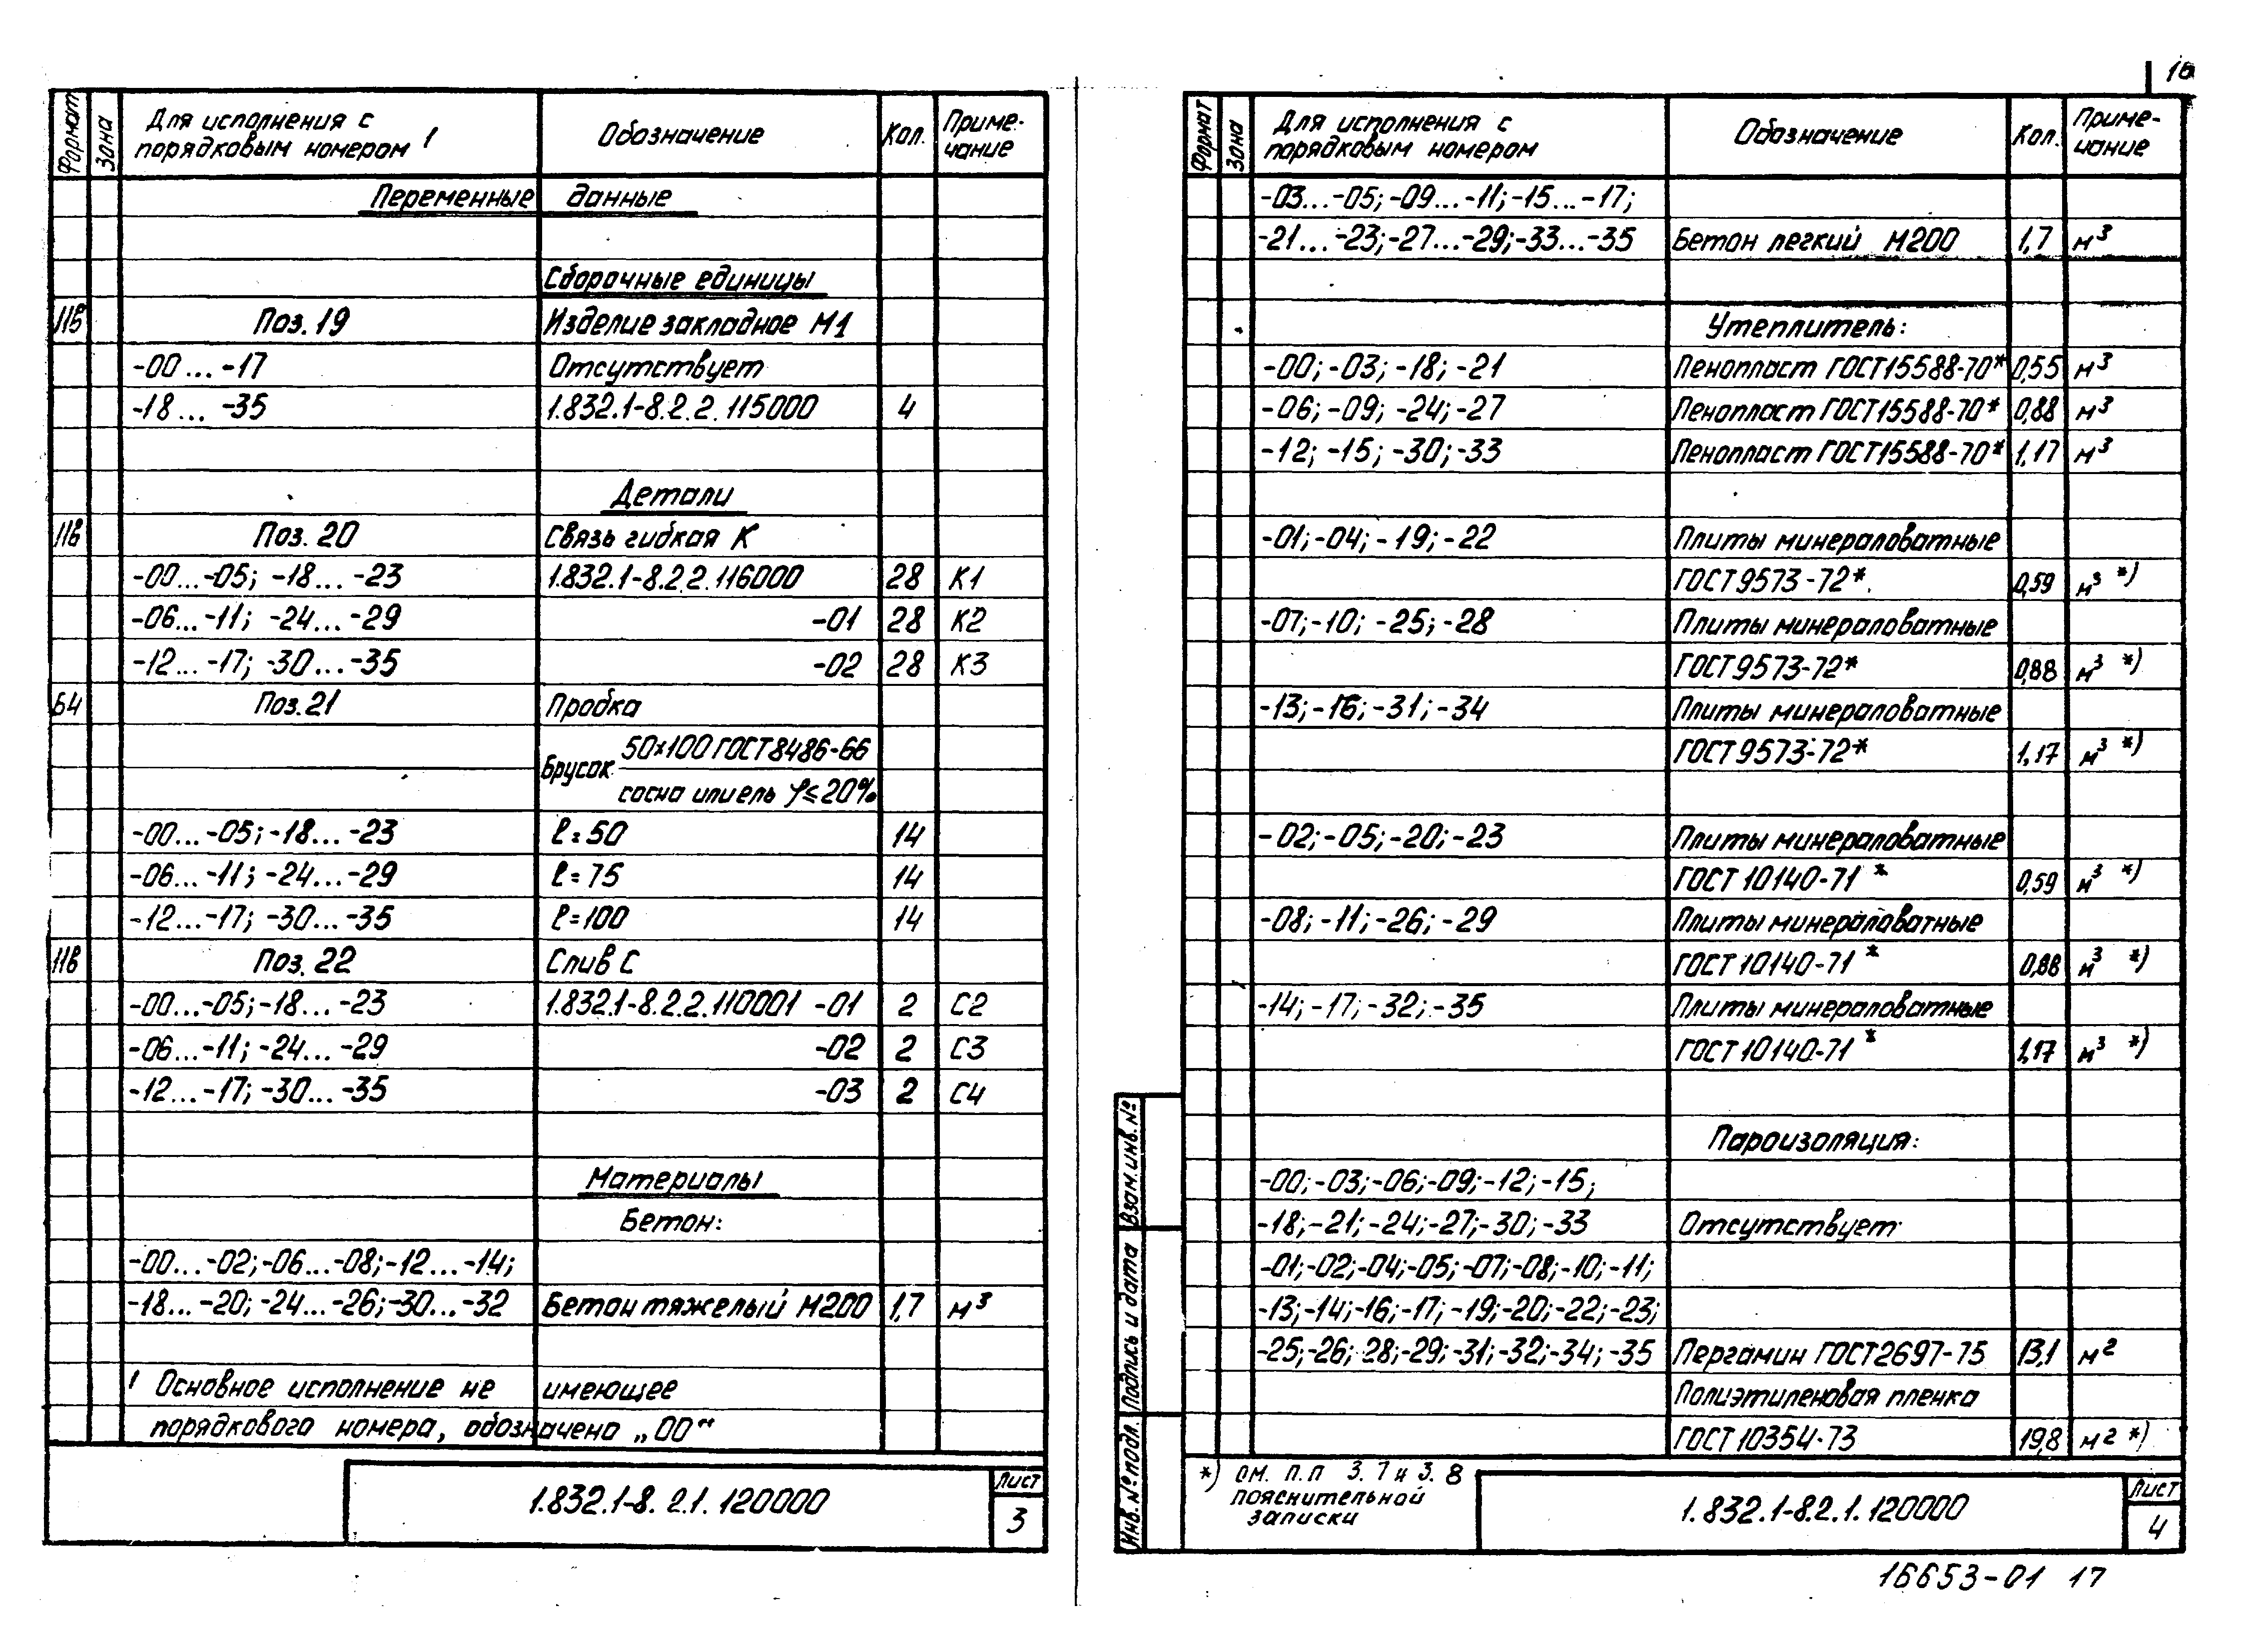 16
Формат
Зона
Для исполнения с порядковым номером 1
Обозначение
Кол.
Приме-чание
Переменные данные
Сборочные единицы
11В Поз. 19 Изделие закладное М1
-00...-17 Отсутствует
-18...-35 1.832.1-8.2.2.115000 4
Детали
11В Поз. 20 Связь гибкая К
-00...-05; -18...-23 1.832.1-8.2.2.116000 28 К1
-06...-11; -24...-29 -01 28 К2
-12...-17; -30...-35 -02 28 К3
БЧ Поз. 21 Пробка
Брусок 50×100 ГОСТ 8486-66
сосна или ель φ≤20%
-00...-05; -18...-23 ℓ=50 14
-06...-11; -24...-29 ℓ=75 14
-12...-17; -30...-35 ℓ=100 14
11В Поз. 22 Слив С
-00...-05; -18...-23 1.832.1-8.2.2.110001 -01 2 С2
-06...-11; -24...-29 -02 2 С3
-12...-17; -30...-35 -03 2 С4
Материалы
Бетон:
-00...-02; -06...-08; -12...-14;
-18...-20; -24...-26; -30...-32 Бетон тяжелый М200 1,7 м³
1 Основное исполнение не имеющее
порядкового номера, обозначено „00“
1.832.1-8.2.1.120000
Лист
3
Формат
Зона
Для исполнения с порядковым номером
Обозначение
Кол.
Приме-чание
-03...-05; -09...-11; -15...-17;
-21...-23; -27...-29; -33...-35 Бетон легкий М200 1,7 м³
Утеплитель:
-00; -03; -18; -21 Пенопласт ГОСТ 15588-70* 0,55 м³
-06; -09; -24; -27 Пенопласт ГОСТ 15588-70* 0,88 м³
-12; -15; -30; -33 Пенопласт ГОСТ 15588-70* 1,17 м³
-01; -04; -19; -22 Плиты минераловатные
ГОСТ 9573-72*. 0,59 м³ *)
-07; -10; -25; -28 Плиты минераловатные
ГОСТ 9573-72* 0,88 м³ *)
-13; -16; -31; -34 Плиты минераловатные
ГОСТ 9573-72* 1,17 м³ *)
-02; -05; -20; -23 Плиты минераловатные
ГОСТ 10140-71* 0,59 м³ *)
-08; -11; -26; -29 Плиты минераловатные
ГОСТ 10140-71* 0,88 м³ *)
-14; -17; -32; -35 Плиты минераловатные
ГОСТ 10140-71* 1,17 м³ *)
Пароизоляция:
-00; -03; -06; -09; -12; -15;
-18; -21; -24; -27; -30; -33 Отсутствует
-01; -02; -04; -05; -07; -08; -10; -11;
-13; -14; -16; -17; -19; -20; -22; -23;
-25; -26; 28; -29; -31; -32; -34; -35 Пергамин ГОСТ 2697-75 13,1 м²
Полиэтиленовая пленка
ГОСТ 10354-73 19,8 м² *)
Взам. инв. №
Подпись и дата
Инв. № подл.
*) см. п.п 3.7 и 3.8
пояснительной
записки
1.832.1-8.2.1.120000
Лист
4
16653-01 17